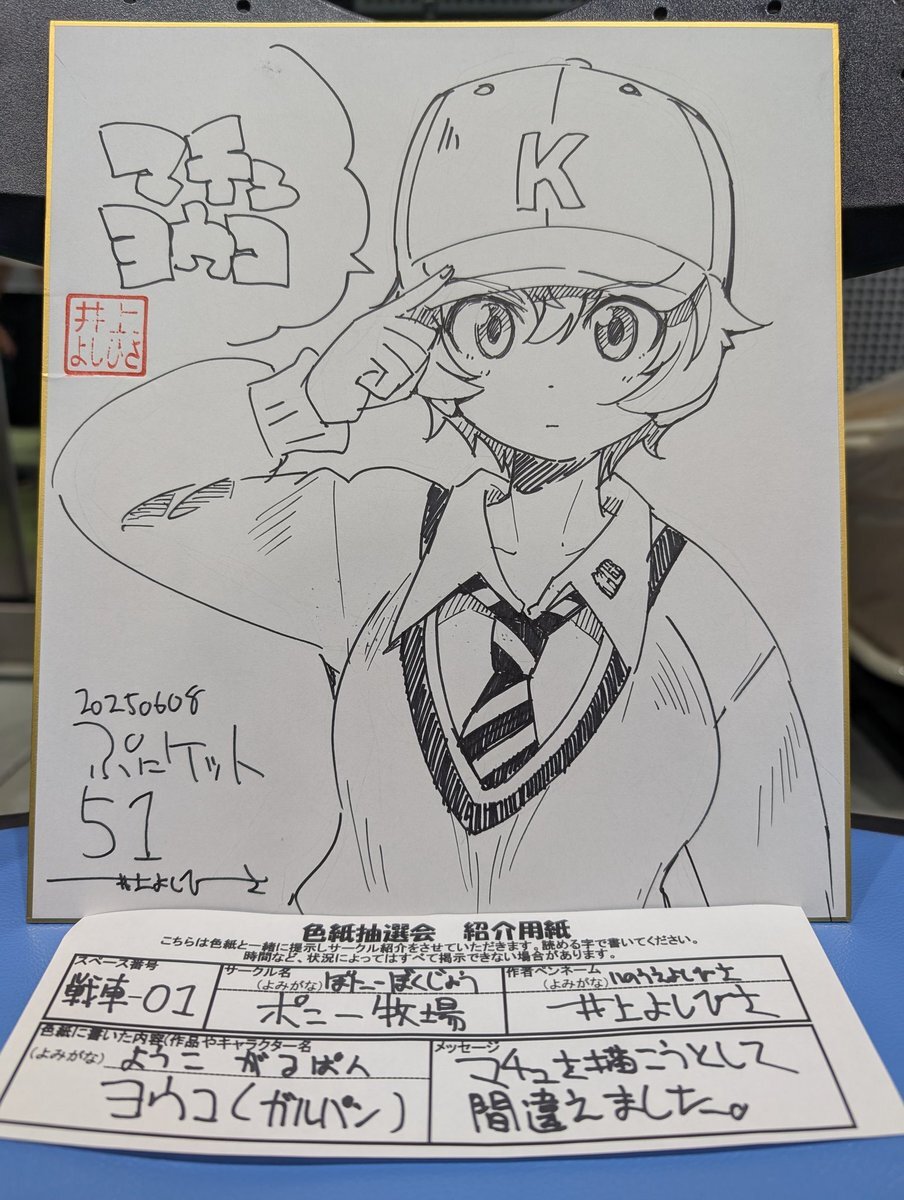 マチュ
ヨウコ
K
井上
よしひさ
20250608
ぷにケット
51
井上よしひさ
色紙抽選会 紹介用紙
こちらは色紙と一緒に提示しサークル紹介をさせていただきます。読める字で書いてください。
時間など、状況によってはすべて掲示できない場合があります。
スペース番号
戦車-01
サークル名
(よみがな) ぽにーぼくじょう
ポニー牧場
作者ペンネーム
(よみがな) いのうえよしひさ
井上よしひさ
色紙に書いた内容(作品やキャラクター名
(よみがな) ようこ がるぱん
ヨウコ(ガルパン)
メッセージ
マチュを描こうとして
間違えました。